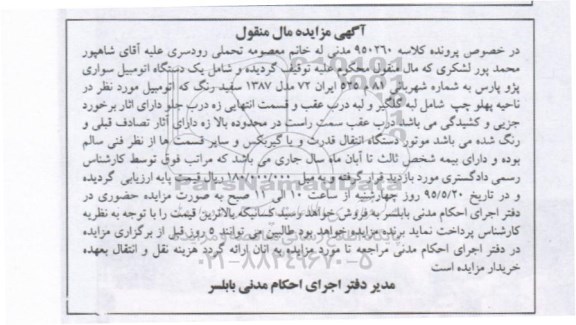 آگهی مزایده مال منقول
در خصوص پرونده کلاسه ۹۵۰۲۶۰ مدنی له خانم معصومه تحملی رودسری علیه آقای شاهپور
محمد پور لشکری که مال منقول محکوم علیه توقیف گردیده و شامل یک دستگاه اتومبیل سواری
پژو پارس به شماره شهربانی ۸۱ م ۵۲۵ ایران ۷۲ مدل ۱۳۸۷ سفید رنگ که اتومبیل مورد نظر در
ناحیه پهلو چپ شامل لبه گلگیر و لبه درب عقب و قسمت انتهایی زه درب جلو دارای اثار برخورد
جزیی و کشیدگی می باشد درب عقب سمت راست در محدوده بالا زه دارای آثار تصادف قبلی و
رنگ شده می باشد موتور دستگاه انتقال قدرت و یا گیربکس و سایر قسمت ها از نظر فنی سالم
بوده و دارای بیمه شخص ثالث تا آبان ماه سال جاری می باشد که مراتب فوق توسط کارشناس
رسمی دادگستری مورد بازدید قرار گرفته و به مبلغ ۱۸۰/۰۰۰/۰۰۰ ریال قیمت پایه ارزیابی گردیده
و در تاریخ ۹۵/۵/۲۰ روز چهارشنبه از ساعت ۱۰ الی ۱۱ صبح به صورت مزایده حضوری در
دفتر اجرای احکام مدنی بابلسر به فروش خواهد رسید کسانیکه بالاترین قیمت را با توجه به نظریه
کارشناس پرداخت نماید برنده مزایده خواهد بود طالبین می توانند ۵ روز قبل از برگزاری مزایده
در دفتر اجرای احکام مدنی مراجعه تا مورد مزایده به آنان ارائه گردد هزینه نقل و انتقال بعهده
خریدار مزایده است
مدیر دفتر اجرای احکام مدنی بابلسر
ParsNamadData
۰۲۱-۸۸۳۴۹۶۷۰-۵